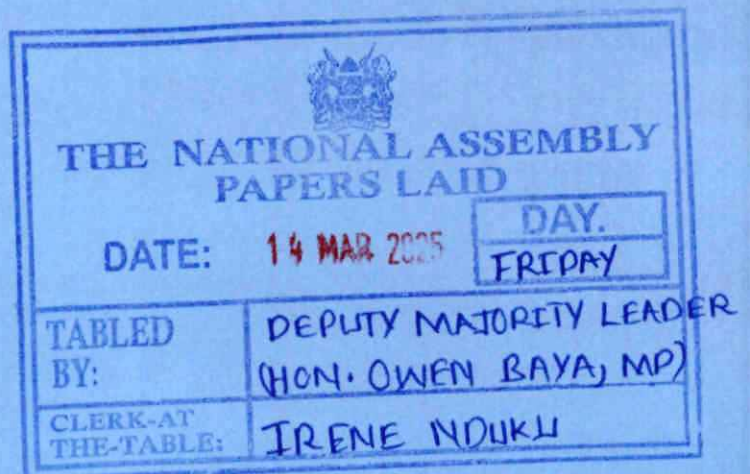 THE NATIONAL ASSEMBLY
PAPERS LAID
DATE: 14 MAR 2025
DAY.
FRIDAY
TABLED BY:
DEPUTY MAJORITY LEADER
(HON. OWEN BAYA, MP)
CLERK-AT THE-TABLE:
IRENE NDUKU